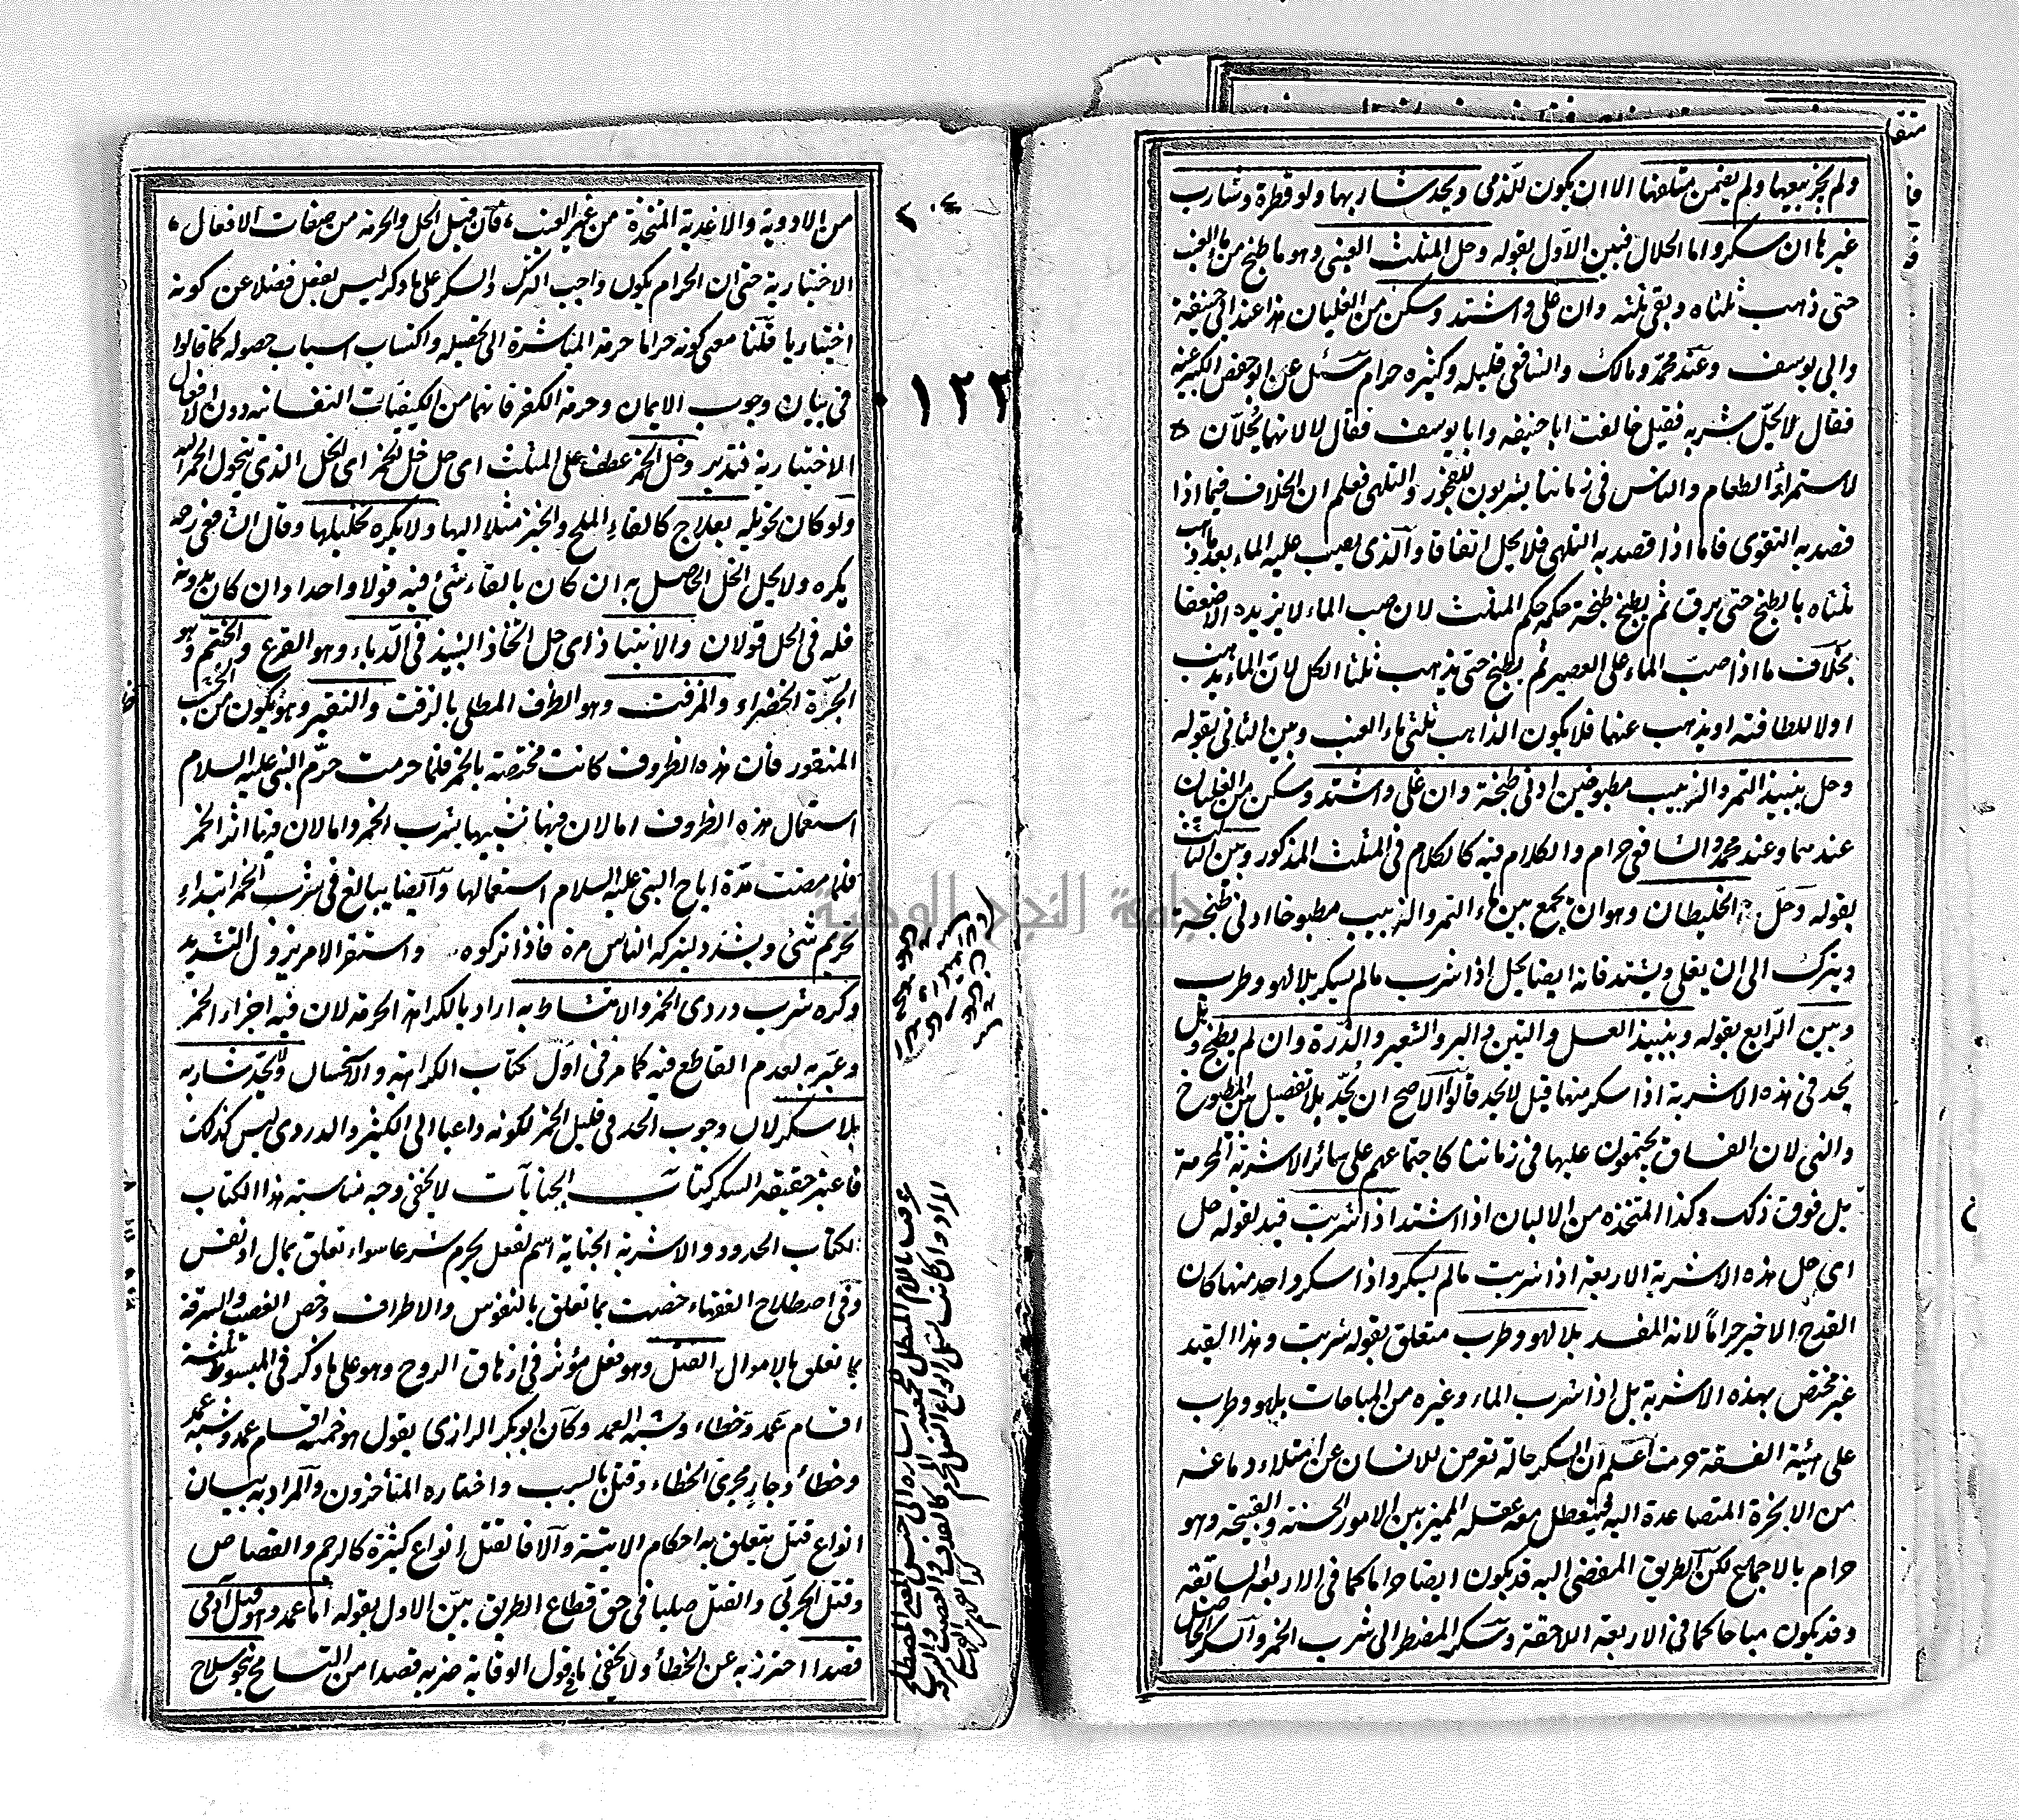 ولم يجز بيعها ولم يضمن متلفها الا ان يكون للذمى ويحد شاربها ولو قطرة وشارب
غيرها ان سكر واما الحلال فبين الاول بقوله وحل المثلث العنبى وهو ما طبخ من ماء العنب
حتى ذهب ثلثاه وبقى ثلثه وان غلى واشتد وسكن من الغليان هذا عند ابى حنيفة
وابى يوسف وعند محمد ومالك والشافعى قليله وكثيره حرام سئل عن ابو حفص الكبير عنه
فقال لا يحل شربه فقيل خالفت ابا حنيفه وابا يوسف فقال لا لانهما يحلان
لاستمراء الطعام والناس فى زماننا يشربون للفجور والتلهى فعلم ان الخلاف فيما اذا
قصد به التقوى فاما اذا قصد به التلهى فلا يحل اتفاقا والذى يصب عليه الماء بعد ما ذهب
ثلثاه بالطبخ حتى يرق ثم يطبخ طبخة حكمه حكم المثلث لان صب الماء لا يزيده الا ضعفا
بخلاف ما اذا صب الماء على العصير ثم يطبخ حتى يذهب ثلثا الكل لان الماء يذهب
اولا للطافته او يذهب عنهما فلا يكون الذاهب ثلثى ماء العنب وبين الثانى بقوله
وحل نبيذ التمر والزبيب مطبوخين ادنى طبخة وان غلى واشتد وسكن من الغليان
عندهما وعند محمد والشافعى حرام والكلام فيه كالكلام فى المثلث المذكور وبين الثالث
بقوله وحل الخليطان وهو ان يجمع بين ماء التمر والزبيب مطبوخا ادنى طبخة
ويترك الى ان يغلى ويشتد فانه ايضا يحل اذا شرب مالم يسكر بلا لهو وطرب
وبين الرابع بقوله ونبيذ العسل والتين والبر والشعير والذرة وان لم يطبخ وهل
يحد فى هذه الاشربة اذا سكر منها قيل لا يحد قالوا الاصح ان يحد بلا تفصيل بين المطبوخ
والنى لان الفساق يجتمعون عليها فى زماننا كاجتماعهم على سائر الاشربة المحرمة
بل فوق ذلك وكذا المتخذه من الالبان اذا اشتد اذا شربت قيد لقوله حل
اى حل هذه الاشربة الاربعة اذا شربت مالم يسكر واذا سكر واحد منها كان
القدح الاخير حراما لانه المفسد بلا لهو وطرب متعلق بقوله شربت وهذا القيد
غير مختص بهذه الاشربة بل اذا شرب الماء وغيره من المباحات بلهو وطرب
على هيئة الفسقة حرمت اعلم ان السكر حالة تعرض للانسان عن امتلاء دماغه
من الابخرة المتصاعدة اليه فيتعطل معه عقله المميز بين الامور الحسنه والقبيحه وهو
حرام بالاجماع لكن الطريق المفضى اليه قد يكون ايضا حراما كما فى الاربعة السابقه
وقد يكون مباحا كما فى الاربعه اللاحقة وسكر المضطر الى شرب الخمر والسكر الحاصل
من الادوية والاغدية المتخذة من غير العنب فان قيل الحل والحرمة من صفات الافعال
الاختيارية حتى ان الحرام يكون واجب الترك والسكر على ما ذكر ليس بفعل فضلا عن كونه
اختياريا قلنا معنى كونه حراما حرمة المباشرة الى تحصيله واكتساب اسباب حصوله كما قالوا
فى بيان وجوب الايمان وحرمة الكفر فانهما من الكيفيات النفسانيه دون الافعال
الاختيارية فتدبر وخل الخمر عطف على المثلث اى حل خل الخمر اى الخل الذى تتحول الخمر اليه
ولو كان تحويله بعلاج كالقاء الملح والخبز مثلا اليها ولا يكره تخليلها وقال الشافعى رحه
يكره ولا يحل الخل الحاصل به ان كان بالقاء شئ فيه قولا واحدا وان كان بدونه
فله فى الحل قولان والانتباذ اى حل اتخاذ النبيذ فى الدباء وهو القرع والحنتم وهو
الجرة الخضراء والمزفت وهو الظرف المطلى بالزفت والنقير وهو يكون من الخشب
المنقور فان هذه الظروف كانت مختصة بالخمر فلما حرمت حرم النبى عليه السلام
استعمال هذه الظروف اما لان فيها تشبيها بشرب الخمر واما لان فيها اثر الخمر
فلما مضت مدة اباح النبى عليه السلام استعمالها وايضا يبالغ فى شرب الخمر ابتداء
تحريم شئ ويشدد ليتركه الناس مرة فاذا تركوه واستقر الامر يزول التشديد
وكره شرب دردى الخمر والامتشاط به اراد بالكراهة الحرمة لان فيه اجزاء الخمر
وعبر به لعدم القاطع فيه كما مر فى اول كتاب الكراهية والاستحسان ولا يحد شاربه
بلا سكر لان وجوب الحد فى قليل الخمر لكونه داعيا الى الكثير والدردى ليس كذلك
فاعتبر حقيقة السكر كتاب الجنايات لا يخفى وجه مناسبة هذا الكتاب
لكتاب الحدود والاشربة الجناية اسم لفعل يحرم شرعا سواء تعلق بمال او نفس
وفى اصطلاح الفقهاء خصت بما تعلق بالنفوس والاطراف وخص الغصب والسرقة
بما تعلق بالاموال القتل وهو فعل مؤثر فى ازهاق الروح وهو على ما ذكر فى المبسوط ثلثة
اقسام عمد وخطاء وشبه العمد وكان ابو بكر الرازى يقول هو خمسة اقسام عمد وشبه عمد
وخطأ وجار مجرى الخطاء وقتل بالسبب واختاره المتأخرون والمراد به بيان
انواع قتل يتعلق به احكام الاتية والا فالقتل انواع كثيرة كالرجم والقصاص
وقتل الحربى والقتل صلبا فى حق قطاع الطريق بين الاول بقوله اما عمد وهو قتل آدمى
قصدا احترز به عن الخطأ ولا يخفى ما فى قول الوقاية ضربه قصدا من التسامح بنحو سلاح
١٢٢
جامعة النجاح الوطنية